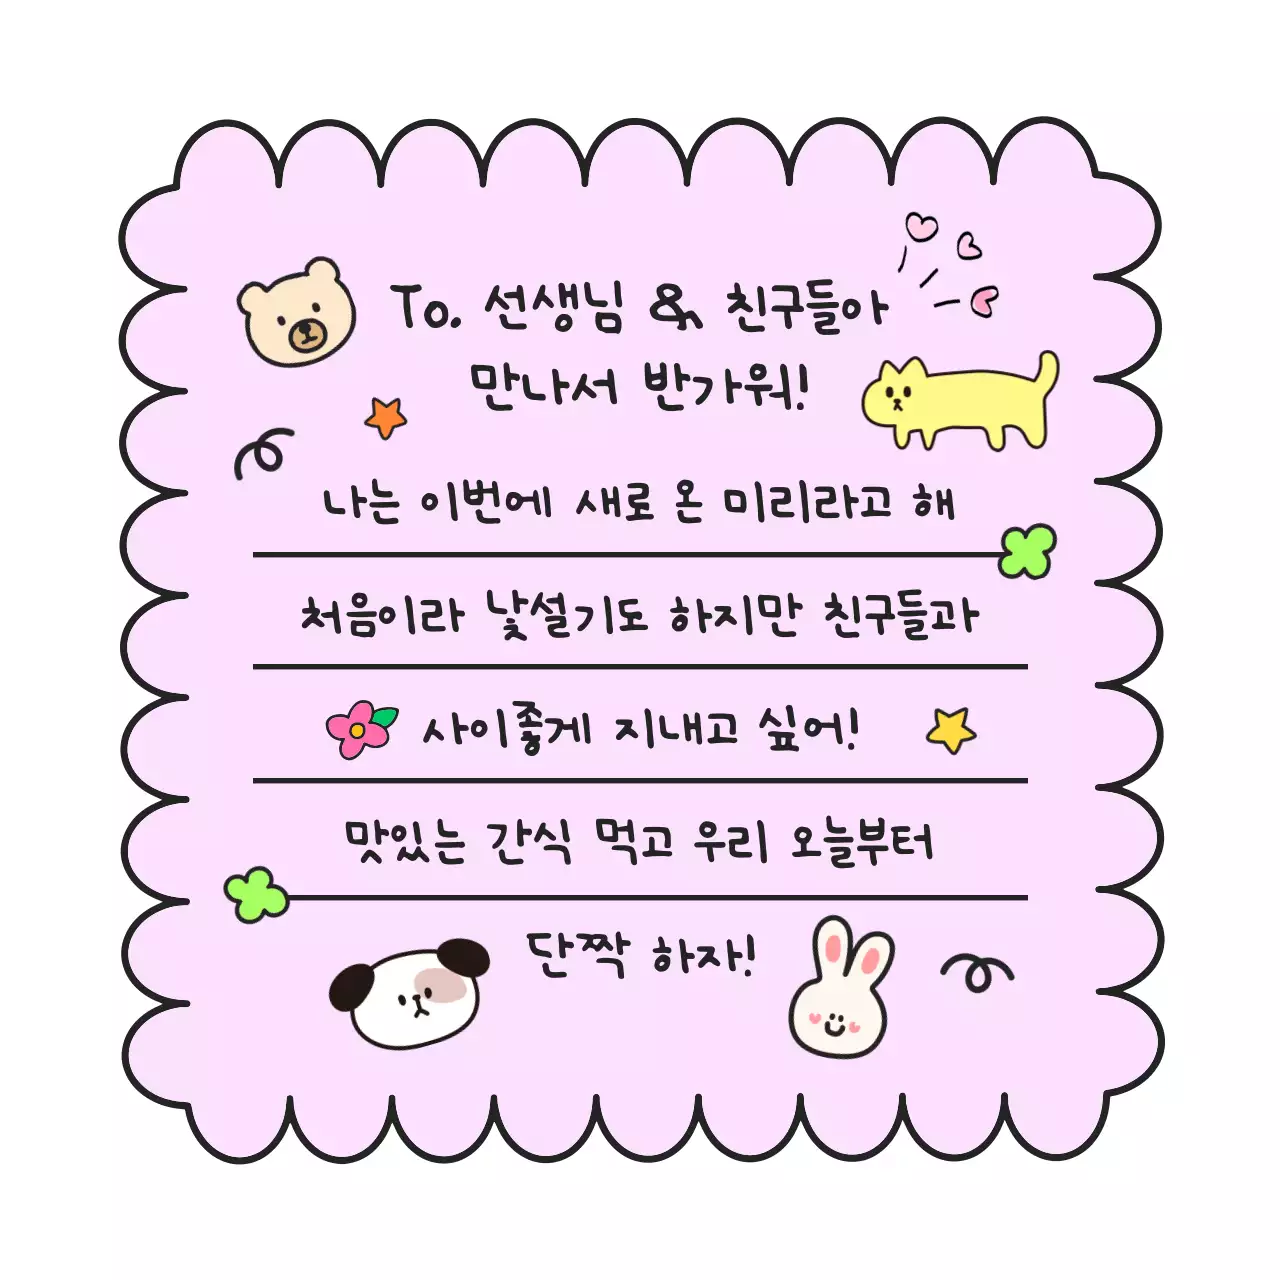 To. 선생님 & 친구들아
만나서 반가워!
나는 이번에 새로 온 미리라고 해
처음이라 낯설기도 하지만 친구들과
사이좋게 지내고 싶어!
맛있는 간식 먹고 우리 오늘부터
단짝 하자!